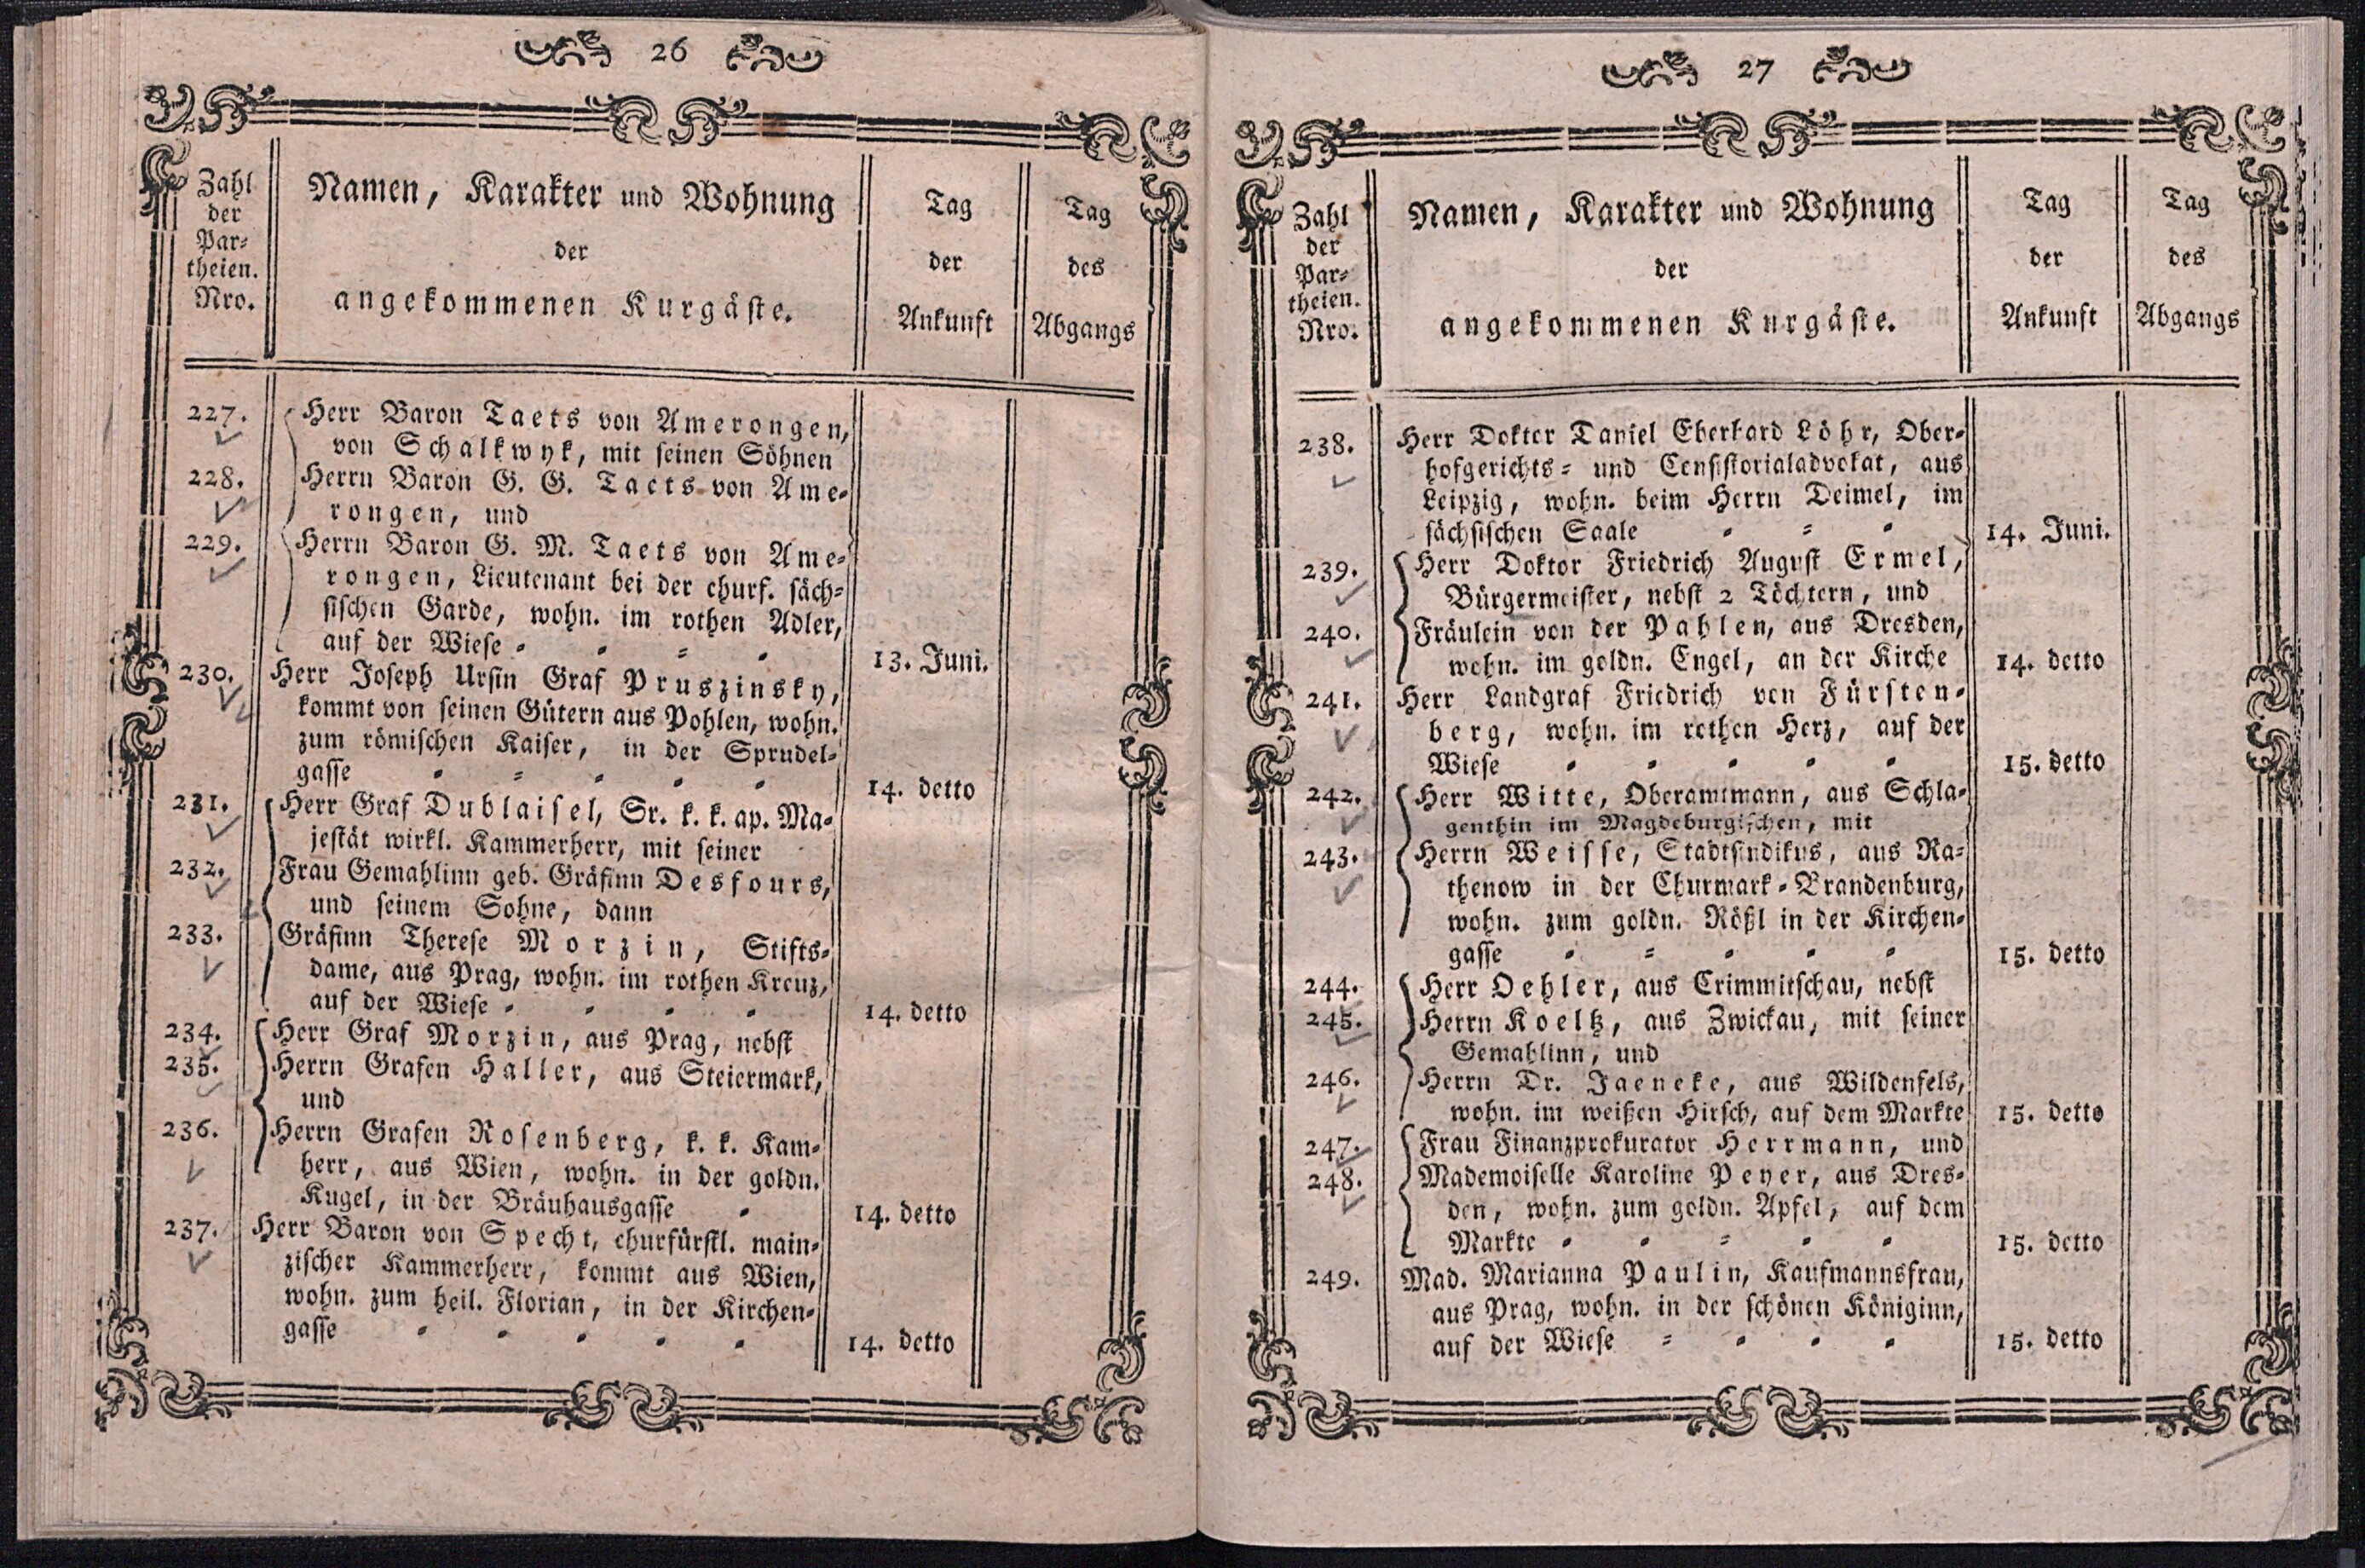 26
Zahl
der
Par-
theien.
Nro.
Namen, Karakter und Wohnung
der
angekommenen Kurgäste.
Tag
der
Ankunft
Tag
des
Abgangs
227. Herr Baron Taets von Amerongen,
von Schalkwyk, mit seinen Söhnen
228. Herrn Baron G. G. Taets von Ame-
rongen, und
229. Herrn Baron G. M. Taets von Ame-
rongen, Lieutenant bei der churf. säch-
sischen Garde, wohn. im rothen Adler,
auf der Wiese - - - - 13. Juni.
230. Herr Joseph Ursin Graf Pruszinsky,
kommt von seinen Gütern aus Pohlen, wohn.
zum römischen Kaiser, in der Sprudel-
gasse - - - - - 14. detto
231. Herr Graf Dublaisel, Sr. k. k. ap. Ma-
jestät wirkl. Kammerherr, mit seiner
232. Frau Gemahlinn geb. Gräfinn Desfours,
und seinem Sohne, dann
233. Gräfinn Therese Morzin, Stifts-
dame, aus Prag, wohn. im rothen Kreuz,
auf der Wiese - - - - 14. detto
234. Herr Graf Morzin, aus Prag, nebst
235. Herrn Grafen Haller, aus Steiermark,
und
236. Herrn Grafen Rosenberg, k. k. Kam-
herr, aus Wien, wohn. in der goldn.
Kugel, in der Bräuhausgasse - 14. detto
237. Herr Baron von Specht, churfürstl. main-
zischer Kammerherr, kommt aus Wien,
wohn. zum heil. Florian, in der Kirchen-
gasse - - - - - 14. detto
27
Zahl
der
Par-
theien.
Nro.
Namen, Karakter und Wohnung
der
angekommenen Kurgäste.
Tag
der
Ankunft
Tag
des
Abgangs
238. Herr Doktor Daniel Eberhard Löhr, Ober-
hofgerichts- und Consistorialadvokat, aus
Leipzig, wohn. beim Herrn Deimel, im
sächsischen Saale - - - 14. Juni.
239. Herr Doktor Friedrich August Ermel,
Bürgermeister, nebst 2 Töchtern, und
240. Fräulein von der Pahlen, aus Dresden,
wohn. im goldn. Engel, an der Kirche 14. detto
241. Herr Landgraf Friedrich von Fürsten-
berg, wohn. im rothen Herz, auf der
Wiese - - - - - 15. detto
242. Herr Witte, Oberamtmann, aus Schla-
genthin im Magdeburgischen, mit
243. Herrn Weisse, Stadtsindikus, aus Ra-
thenow in der Churmark-Brandenburg,
wohn. zum goldn. Rößl in der Kirchen-
gasse - - - - - 15. detto
244. Herr Oehler, aus Crimmitschau, nebst
245. Herrn Koeltz, aus Zwickau, mit seiner
Gemahlinn, und
246. Herrn Dr. Jaeneke, aus Wildenfels,
wohn. im weißen Hirsch, auf dem Markte 15. detto
247. Frau Finanzprokurator Herrmann, und
248. Mademoiselle Karoline Peyer, aus Dres-
den, wohn. zum goldn. Apfel, auf dem
Markte - - - - - 15. detto
249. Mad. Marianna Paulin, Kaufmannsfrau,
aus Prag, wohn. in der schönen Königinn,
auf der Wiese - - - - 15. detto